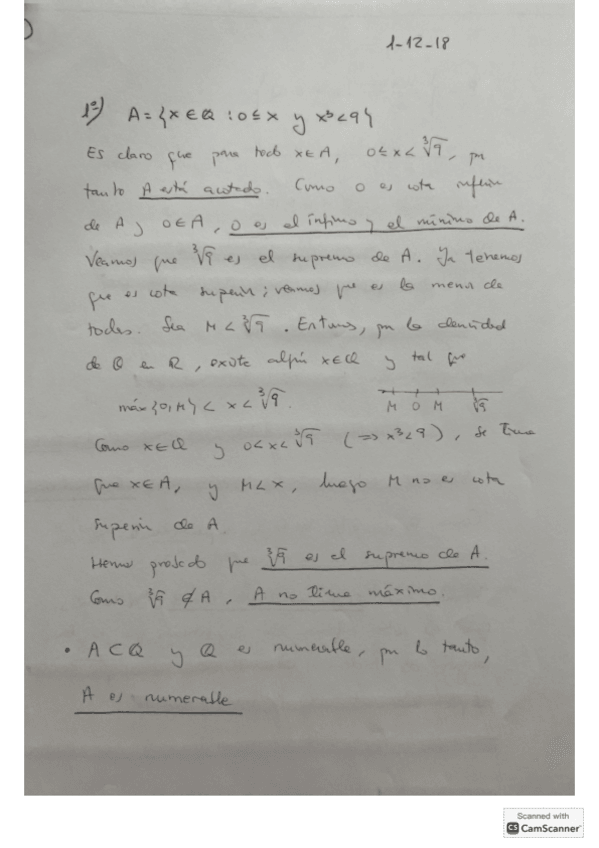 1-12-18
1º) A = {x ∈ Q : 0 ≤ x y x³ < 9}
Es claro que para todo x ∈ A, 0 ≤ x < ∛9, por
tanto A está acotado. Como 0 es cota inferior
de A y 0 ∈ A, 0 es el ínfimo y el mínimo de A.
Veamos que ∛9 es el supremo de A. Ya tenemos
que es cota superior; veamos que es la menor de
todas. Sea M < ∛9. Entonces, por la densidad
de Q en R, existe algún x ∈ Q y tal que
máx{0, M} < x < ∛9.
M 0 M ∛9
Como x ∈ Q y 0 < x < ∛9 (⇒ x³ < 9), se tiene
que x ∈ A, y M < x, luego M no es cota
superior de A.
Hemos probado que ∛9 es el supremo de A.
Como ∛9 ∉ A, A no tiene máximo.
• A ⊂ Q y Q es numerable, por lo tanto,
A es numerable
Scanned with
CS CamScanner